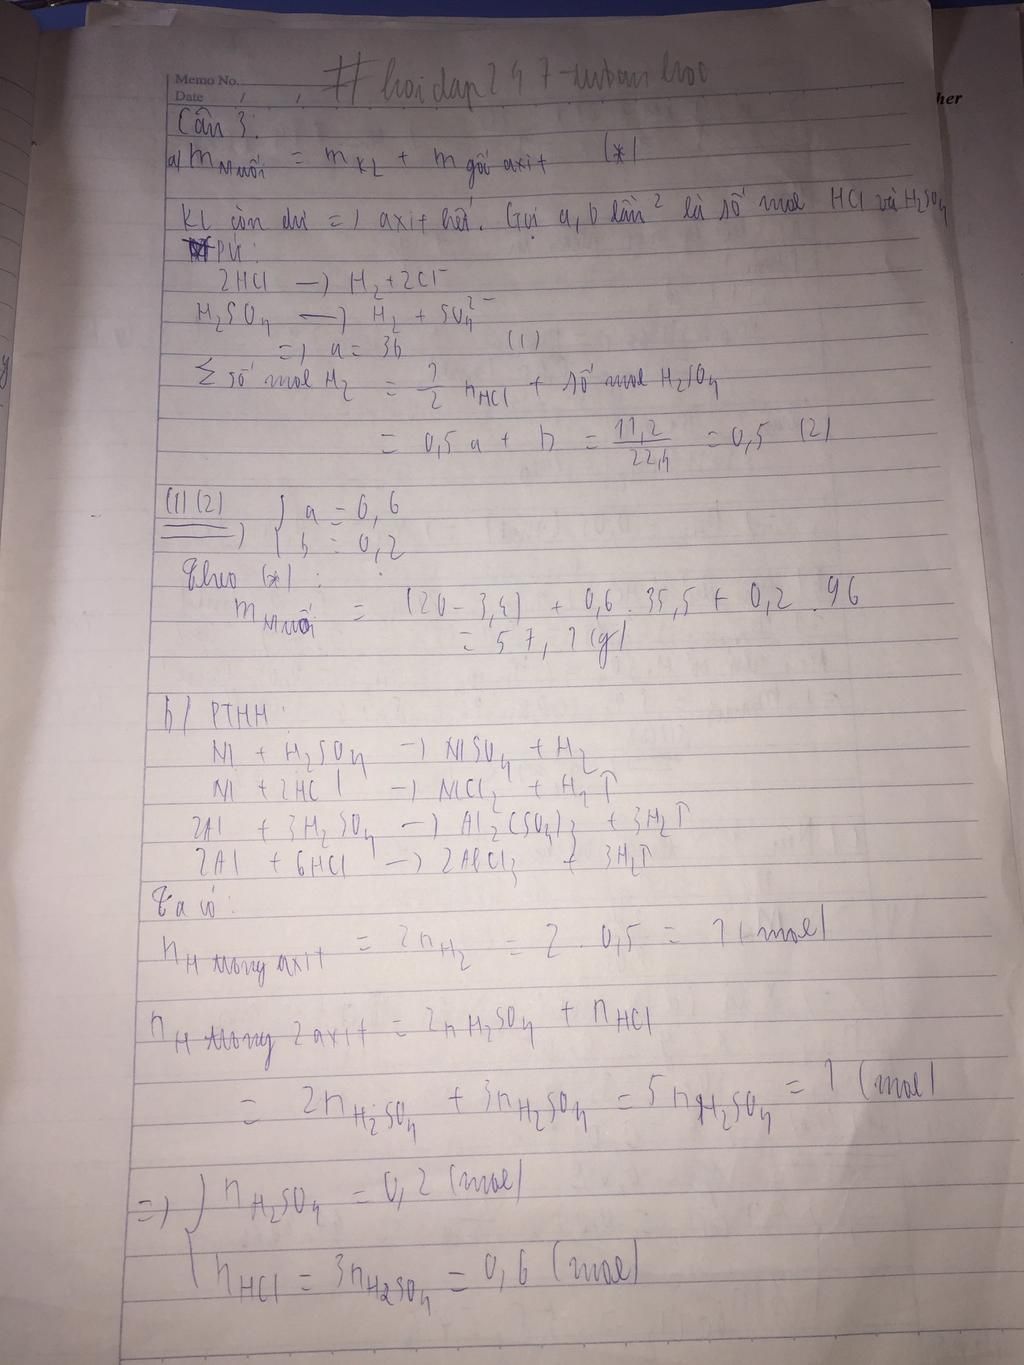 Memo No.
Date / /
# hoidap247-
her
Câu 3:
a) m Muối = m KL + m gốc axit (*)
KL còn dư => axit hết. Gọi a, b lần² là số mol HCl và H₂SO₄
PƯ:
2HCl → H₂ + 2Cl⁻
H₂SO₄ → H₂ + SO₄²⁻
=> a = 3b (1)
Σ số mol H₂ = 1/2 nHCl + số mol H₂SO₄
= 0,5a + b = 11,2/22,4 = 0,5 (2)
(1)(2) => { a = 0,6
{ b = 0,2
Theo (*):
m Muối = (20 - 3,4) + 0,6 . 35,5 + 0,2 . 96
= 57,1 (g)
b) PTHH:
Ni + H₂SO₄ → NiSO₄ + H₂
Ni + 2HCl → NiCl₂ + H₂↑
2Al + 3H₂SO₄ → Al₂(SO₄)₃ + 3H₂↑
2Al + 6HCl → 2AlCl₃ + 3H₂↑
Ta có:
nH trong axit = 2nH₂ = 2 . 0,5 = 1 (mol)
nH trong 2 axit = 2nH₂SO₄ + nHCl
= 2nH₂SO₄ + 3nH₂SO₄ = 5nH₂SO₄ = 1 (mol)
=> { nH₂SO₄ = 0,2 (mol)
{ nHCl = 3nH₂SO₄ = 0,6 (mol)